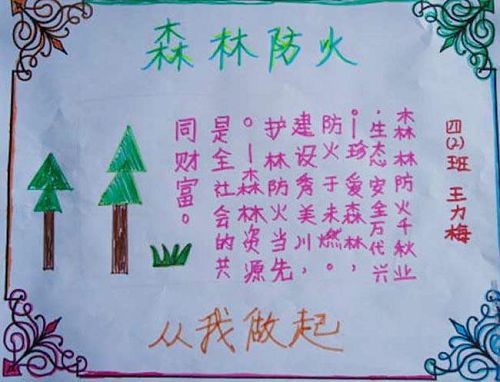 森林防火
四(2)班 王力梅
森林防火千秋业
,生态安全万代兴
。—珍爱森林,
防火于未燃。
建设秀美川,
护林防火当先
。—森林资源
是全社会的共
同财富。
从我做起